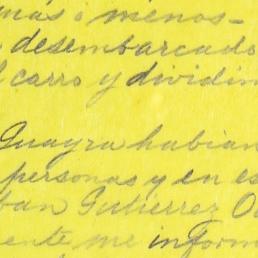 mas o menos-
desembarcado
carro y dividim
Guayra habian
personas y en es
ban Gutierrez O
ente me inform